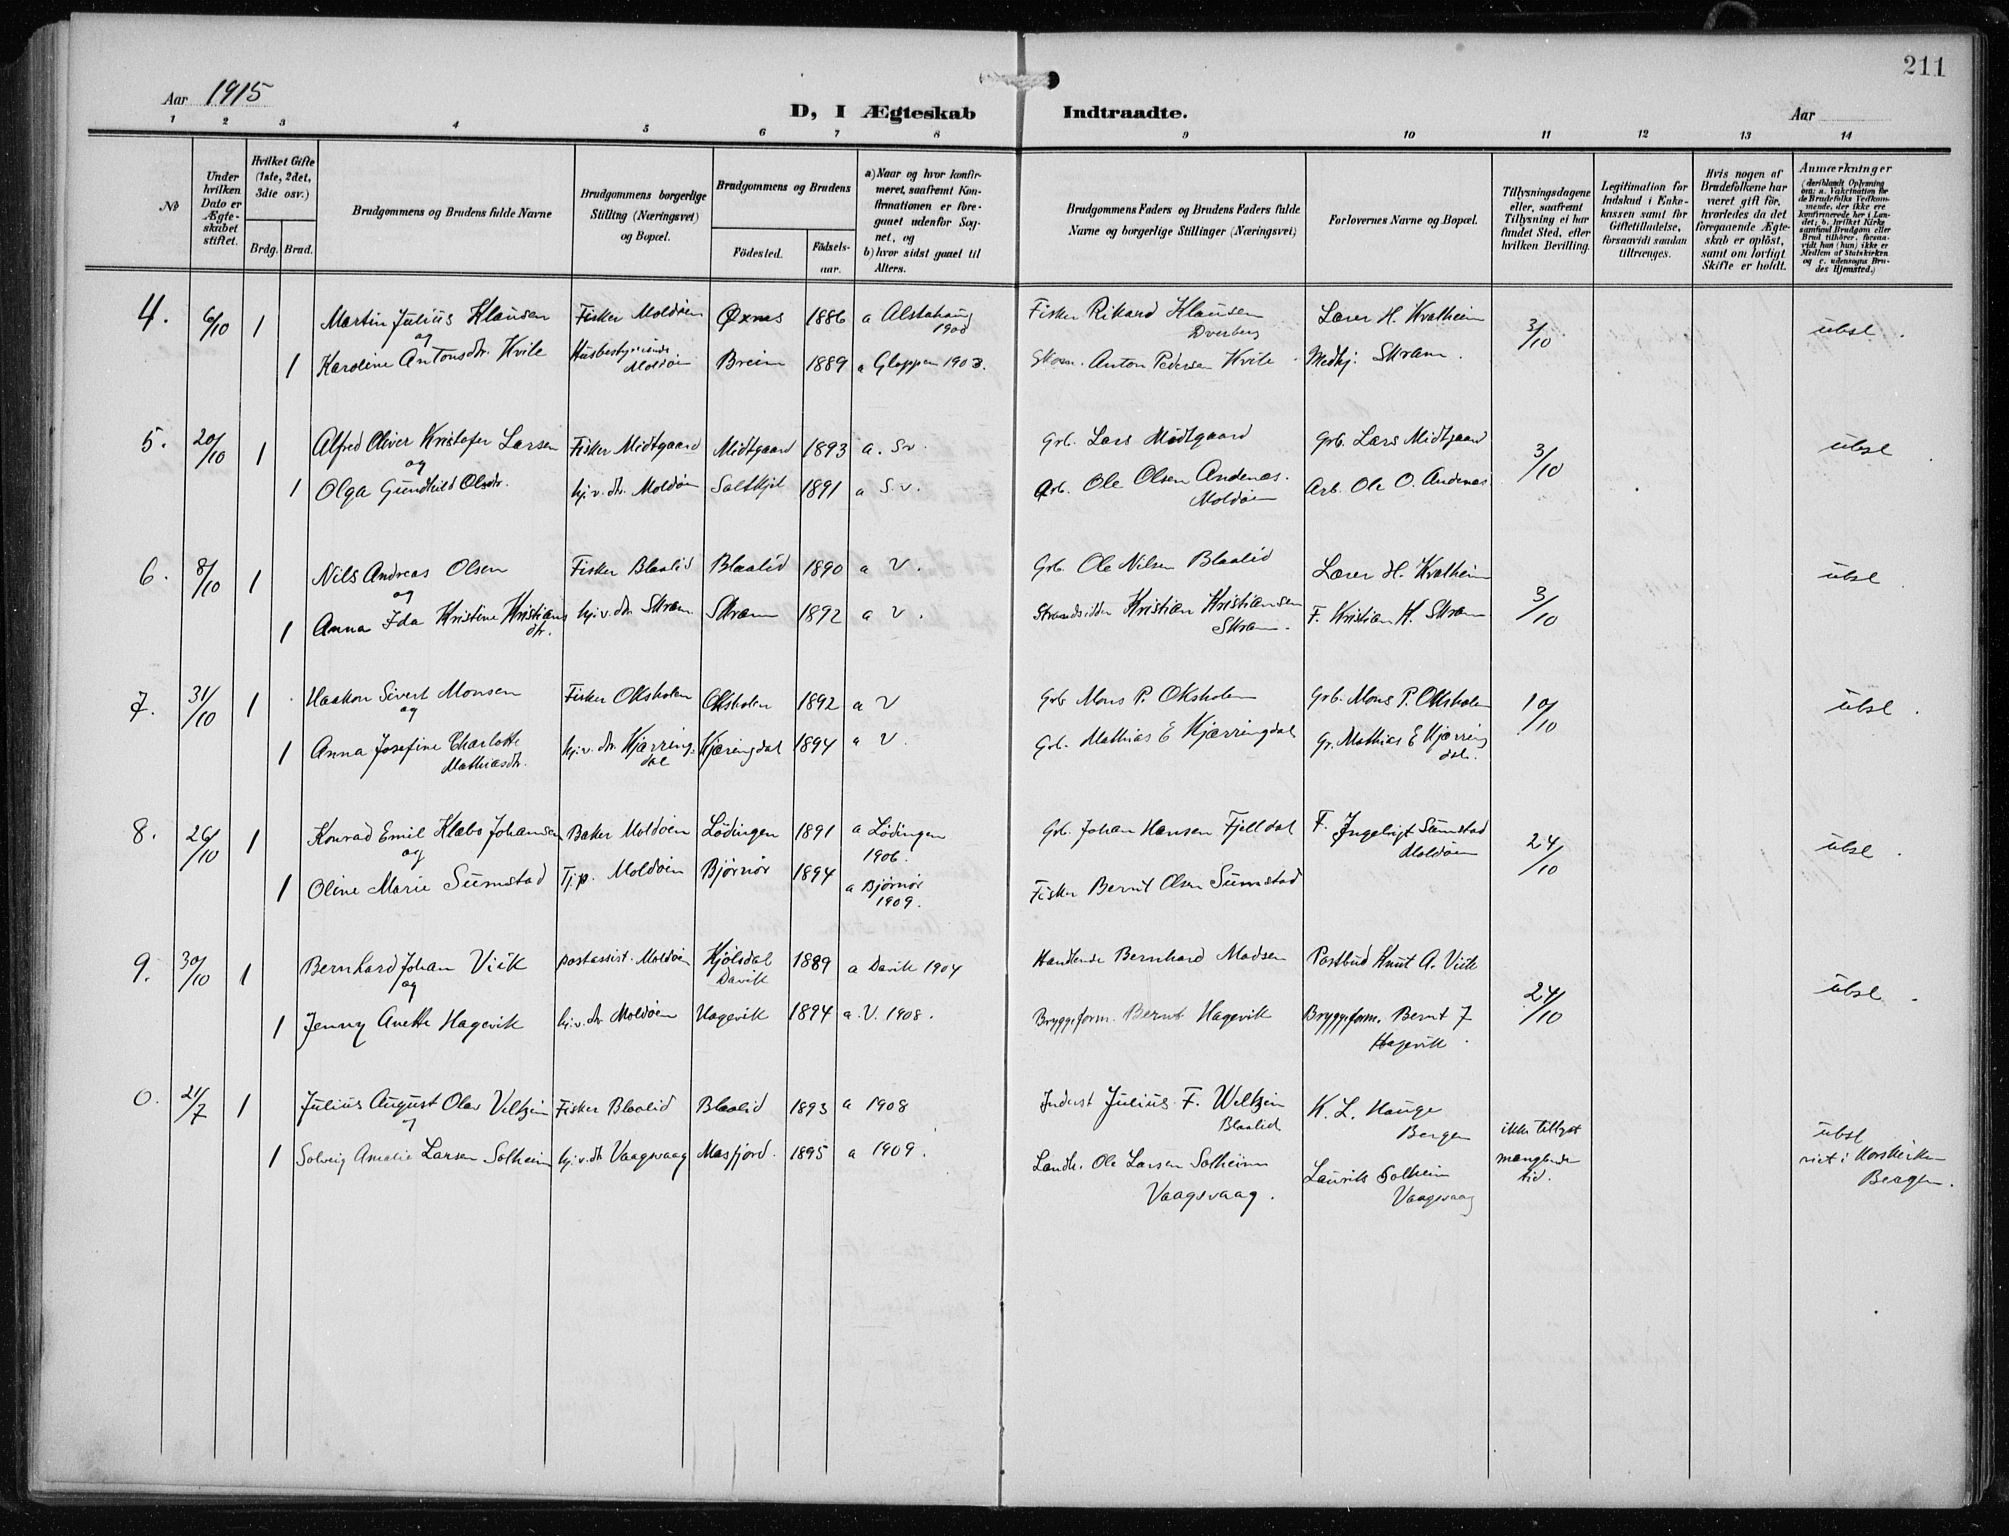 211
Aar 1915
D, I Ægteskab Indtraadte.
Aar
1 2 3 4 5 6 7 8 9 10 11 12 13 14
No
Under hvilken Dato er Ægteskabet stiftet.
Hvilket Gifte (1ste, 2det, 3die osv.)
Brdg. Brud.
Brudgommens og Brudens fulde Navne
Brudgommens borgerlige Stilling (Næringsvei) og Bopæl.
Brudgommens og Brudens
Födested. Födselsaar.
a) Naar og hvor konfirmeret, saafremt Konfirmationen er foregaaet udenfor Sognet, og
b) hvor sidst gaaet til Alters.
Brudgommens Faders og Brudens Faders fulde Navne og borgerlige Stillinger (Næringsvei)
Forlovernes Navne og Bopæl.
Tillysningsdagene eller, saafremt Tillysning ei har fundet Sted, efter hvilken Bevilling.
Legitimation for Indskud i Enkekassen samt for Giftetilladelse, forsaavidt saadan tiltrænges.
Hvis nogen af Brudefolkene har været gift för, hvorledes da det foregaaende Ægteskab er oplöst, samt om lovligt Skifte er holdt.
Anmærkninger
(deriblandt Oplysning om: a. Vakcination for de Brudefolks Vedkommende, der ikke ere konfirmerede her i Landet; b. hvilket Kirkesamfund Brudgom eller Brud tilhörer, forsaavidt han (hun) ikke er Medlem af Statskirken og c. udensogns Brudes Hjemsted.)
4. 6/10 1 Martin Julius Klausen Fisker Moldøen Øxnes 1886 a Alstahaug 1900 Fisker Rikard Klausen Dverberg Lærer H. Kvalheim 3/10 ubsl.
og
1 Karoline Antonsdtr. Kvile Husbestyrerinde Moldøen Breim 1889 a Gloppen 1903. Anton Pedersen Kvile Medhj. Skram.
5. 20/10 1 Alfred Oliver Kristofer Larsen Fisker Midtgaard Midtgaard 1893 a. Sv. Grb. Lars Midtgaard Grb. Lars Midtgaard 3/10 ubsl
og
1 Olga Gundhild Olsdtr. hj.v. dtr. Moldøen Saltkjel 1891 a S.v. Arb. Ole Olsen Andenæs. Moldøen Arb. Ole O. Andenæs.
6. 8/10 1 Nils Andreas Olsen Fisker Blaalid Blaalid 1890 a V. Grb. Ole Nilsen Blaalid Lærer H. Kvalheim 3/10 ubsl
og
1 Anna Ida Kristine Kristiansdtr. hj.v. dtr. Skram Skram 1892 a V. Strandsidder Kristian Kristiansen Skram. F. Kristian K. Skram
7. 31/10 1 Haakon Sivert Monsen Fisker Oksholen Oksholen 1892 a V Grb Mons P. Oksholen Grb. Mons P. Oksholen 10/10 ubsl.
og
1 Anna Josefine Charlotte Mathiasdtr. hj.v. dtr. Kjærringdal Kjæringdal 1894 a V. Grb. Mathias E Kjærringdal Gr. Mathias E Kjærringdal.
8. 26/10 1 Konrad Emil Klæbo Johansen Baker Moldøen Lödingen 1891 a Lödingen 1906. Grb. Johan Hansen Fjelldal F. Ingebrigt Sumstad Moldøen 24/10 ubsl.
og
1 Oline Marie Sumstad Tj.p. Moldøen Bjørnør 1894 a Bjørnør 1909. Fisker Bernt Olsen Sumstad
9. 30/10 1 Bernhard Johan Viik postassist. Moldøen Kjølsdal Davik 1889 a Davik 1904 Handlende Bernhard Madsen Postbud Knut A. Viik 24/10 ubsl.
og
1 Jenny Anette Hagevik hj.v. dtr Moldøen Hagevik 1894 a. V. 1908. Bryggeform. Bernt Hagevik Bryggeform. Bernt J Hagevik.
0. 21/7 1 Julius August Olav Veltzin Fisker Blaalid Blaalid 1893 a 1908 Inderst Julius F. Weltzin Blaalid K. L. Hauge Bergen ikke tillyst manglende tid. ubsl viet i Korskirken Bergen.
og
1 Solveig Amalie Larsen Solheim hj.v. dtr Vaagsvaag Masfjord. 1895 a 1909. Landh. Ole Larsen Solheim Vaagsvaag. Laurits Solheim Vaagsvaag